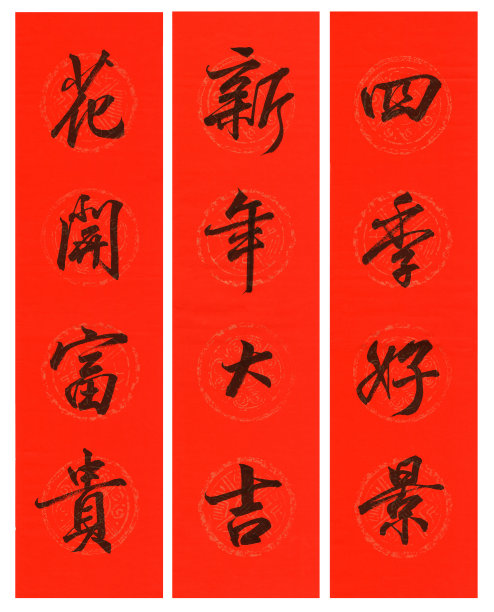 四季好景
新年大吉
花開富貴